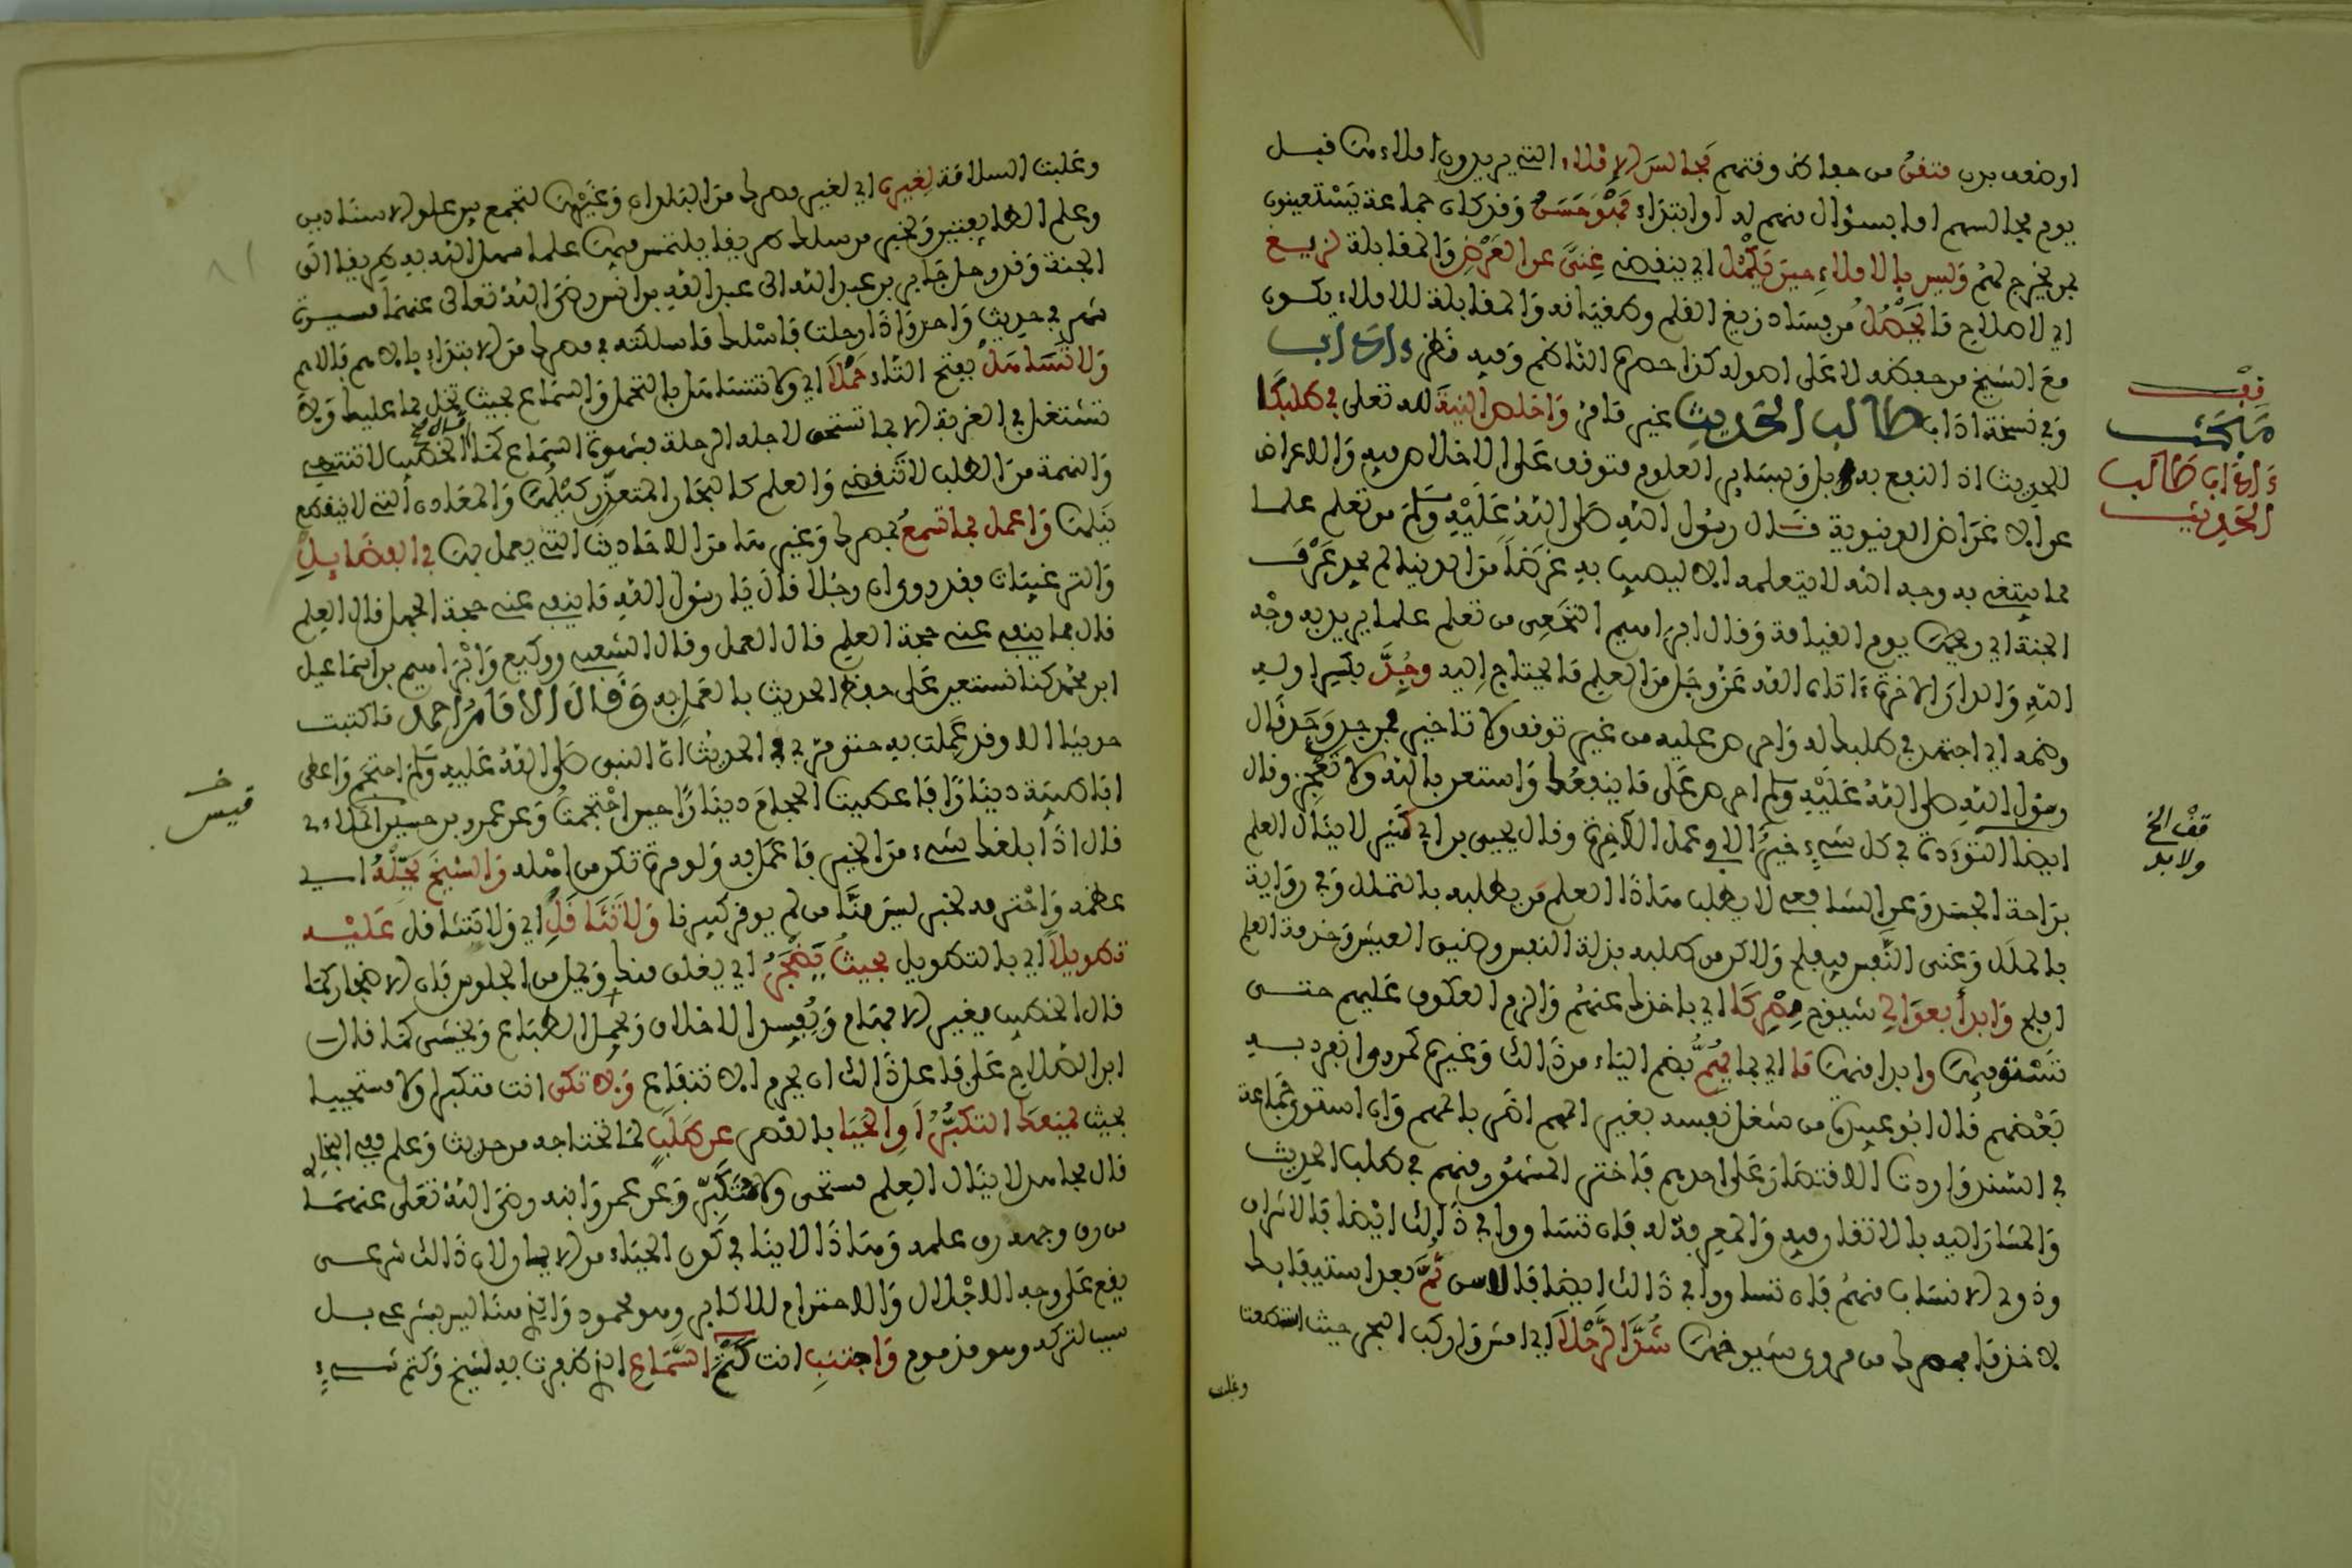 او ضعف بدن متفن من حفاظ وقتهم مجالس الاملاء التي يريدون املاءها قبل
يوم مجالسهم اما بسؤال منهم له او ابتداء فهو حسن وقد كان جماعة يستعينون
بمن يخرج لهم وليس بالاملاء حين يكمل اي ينقضي غنى عن العرض والمقابلة لزيغ
اي لاصلاح ما يحصل من فساد زيغ القلم وطغيانه والمقابلة للاملاء يكون
مع الشيخ من حفظه لا على اصوله كذا حصره الناظم وفيه نظر ءاداب
وفي نسخة اداب طالب الحديث غير ما مر واخلص النية لله تعلى في طلبكا
للحديث اذ النفع به بل وبساير العلوم متوقف على الاخلاص فيه والاعراض
عن الاغراض الدنيوية قال رسول الله صلى الله عليه وسلم من تعلم علما
مما يبتغى به وجه الله لا يتعلمه الا ليصيب به غرضا من الدنيا لم يجد عرف
الجنة اي ريحها يوم القيامة وقال ابراهيم النخعي من تعلم علما يريد به وجه
الله والدار الاخرة ءاتاه الله عز وجل من العلم ما يحتاج اليه وجد بكسر اوله
وضمه اي اجتهد في طلبك له واحرص عليه من غير توقف ولا تاخير فمن جد وجد قال
رسول الله صلى الله عليه وسلم احرص على ما ينفعك واستعن بالله ولا تعجز وقال
ايضا التؤدة في كل شيء خير الا في عمل الاخرة وقال يحيى بن ابي كثير لا ينال العلم
براحة الجسد وعن الشافعي لا يطلب هاذا العلم من يطلبه بالتملل وفي رواية
بالملل وغنى النفس فيفلح ولاكن من طلبه بذلة النفس وضيق العيش وخدمة العلم
افلح وابدأ بعوالي شيوخ مصركا اي باخذك عنهم والزم العكوف عليهم حتى
تستوفيها وابدا منها ما اي بما يهم بضم الياء من ذالك وغيره كمروي انفرد به
بعضهم قال ابو عبيدة من شغل نفسه بغير المهم اضر بالمهم وان استوى جماعة
في السند واردت الاقتصار على احدهم فاختر المشهور منهم في طلب الحديث
والمشار اليه بالاتقان فيه والمعرفة له فان تساووا في ذالك ايضا فالاشراف
وذوي الانساب منهم فان تساووا في ذالك ايضا فالاسن ثم بعد استيفايك
لاخذ ما بمصرك من مروي شيوخها شد الرحلا اي امش واركب البحر حيث استطعت
وغلب
قف
مبحث
ءاداب طالب
الحديث
قف الخ
ولا بد
وغلبت السلامة لغيره اي لغير مصرك من البلدان وغيرها لتجمع بين علو الاسنادين
وعلم الطايفتين ولخبر من سلك طريقا يلتمس فيها علما سهل الله به طريقا الى
الجنة وقد رحل جابر بن عبد الله الى عبد الله بن انيس رضي الله تعالى عنهما مسيرة
شهر في حديث واحد واذا رحلت فاسلك ما سلكته في مصرك من الابتداء بالاهم فالاهم
ولا تساهل بفتح التاء حملا اي ولا تتساهل بالتحمل والسماع بحيث تخل بما عليك ولا
تشتغل في الغربة الا بما تستحق لاجله الرحلة فشهوة السماع كما قال الخطيب لا تنتهي
والنهمة من الطلب لا تنقضي والعلم كالبحار المتعذر كيلها والمعادن التي لا ينقطع
نيلها واعمل بما تسمع بمصرك وغيرها من الاحاديث التي يعمل بها في الفضايل
والترغيبات فقد روي ان رجلا قال يا رسول الله ما ينفي عني حجة الجهل قال العلم
قال فما ينفي عني حجة العلم قال العمل وقال الشعبي ووكيع وابراهيم بن اسماعيل
ابن مجمع كنا نستعين على حفظ الحديث بالعمل به وقال الامام احمد ما كتبت
حديثا الا وقد عملت به حتى مر بي في الحديث ان النبي صلى الله عليه وسلم احتجم واعطى
ابا طيبة دينارا فاعطيت الحجام دينارا حين احتجمت وعن عمرو بن قيس الملاءي
قال اذا بلغك شيء من الخير فاعمل به ولو مرة تكن من اهله والشيخ بجله اي
عظمه واحترمه لخبر ليس منا من لم يوقر كبيرنا ولا تثاقل اي ولا تتثاقل عليه
تطويلا اي بالتطويل بحيث يضجر اي يقلق منك ويمل من الجلوس فان الاضجار كما
قال الخطيب يغير الافهام ويفسد الاخلاق ويحيل الطباع ويخشى كما قال
ابن الصلاح على فاعل ذالك ان يحرم الانتفاع ولا تكن انت متكبرا ولا مستحييا
بحيث يمنعك التكبر او الحيا بالقصر عن طلب لما تحتاجه من حديث وعلم ففي البخاري
قال مجاهد لا ينال العلم مستحي ولا متكبر وعن عمر وابنه رضي الله تعلى عنهما
من رق وجهه رق علمه وهاذا لا ينافي كون الحياء من الايمان لان ذالك شرعي
يقع على وجه الاجلال والاحترام للاكابر وهو محمود والذي هنا ليس بشرعي بل
سبب لتركه وهو مذموم واجتنب انت كتم السماع الذي ظفرت به لشيخ وكتم شيء
خـ
قيس